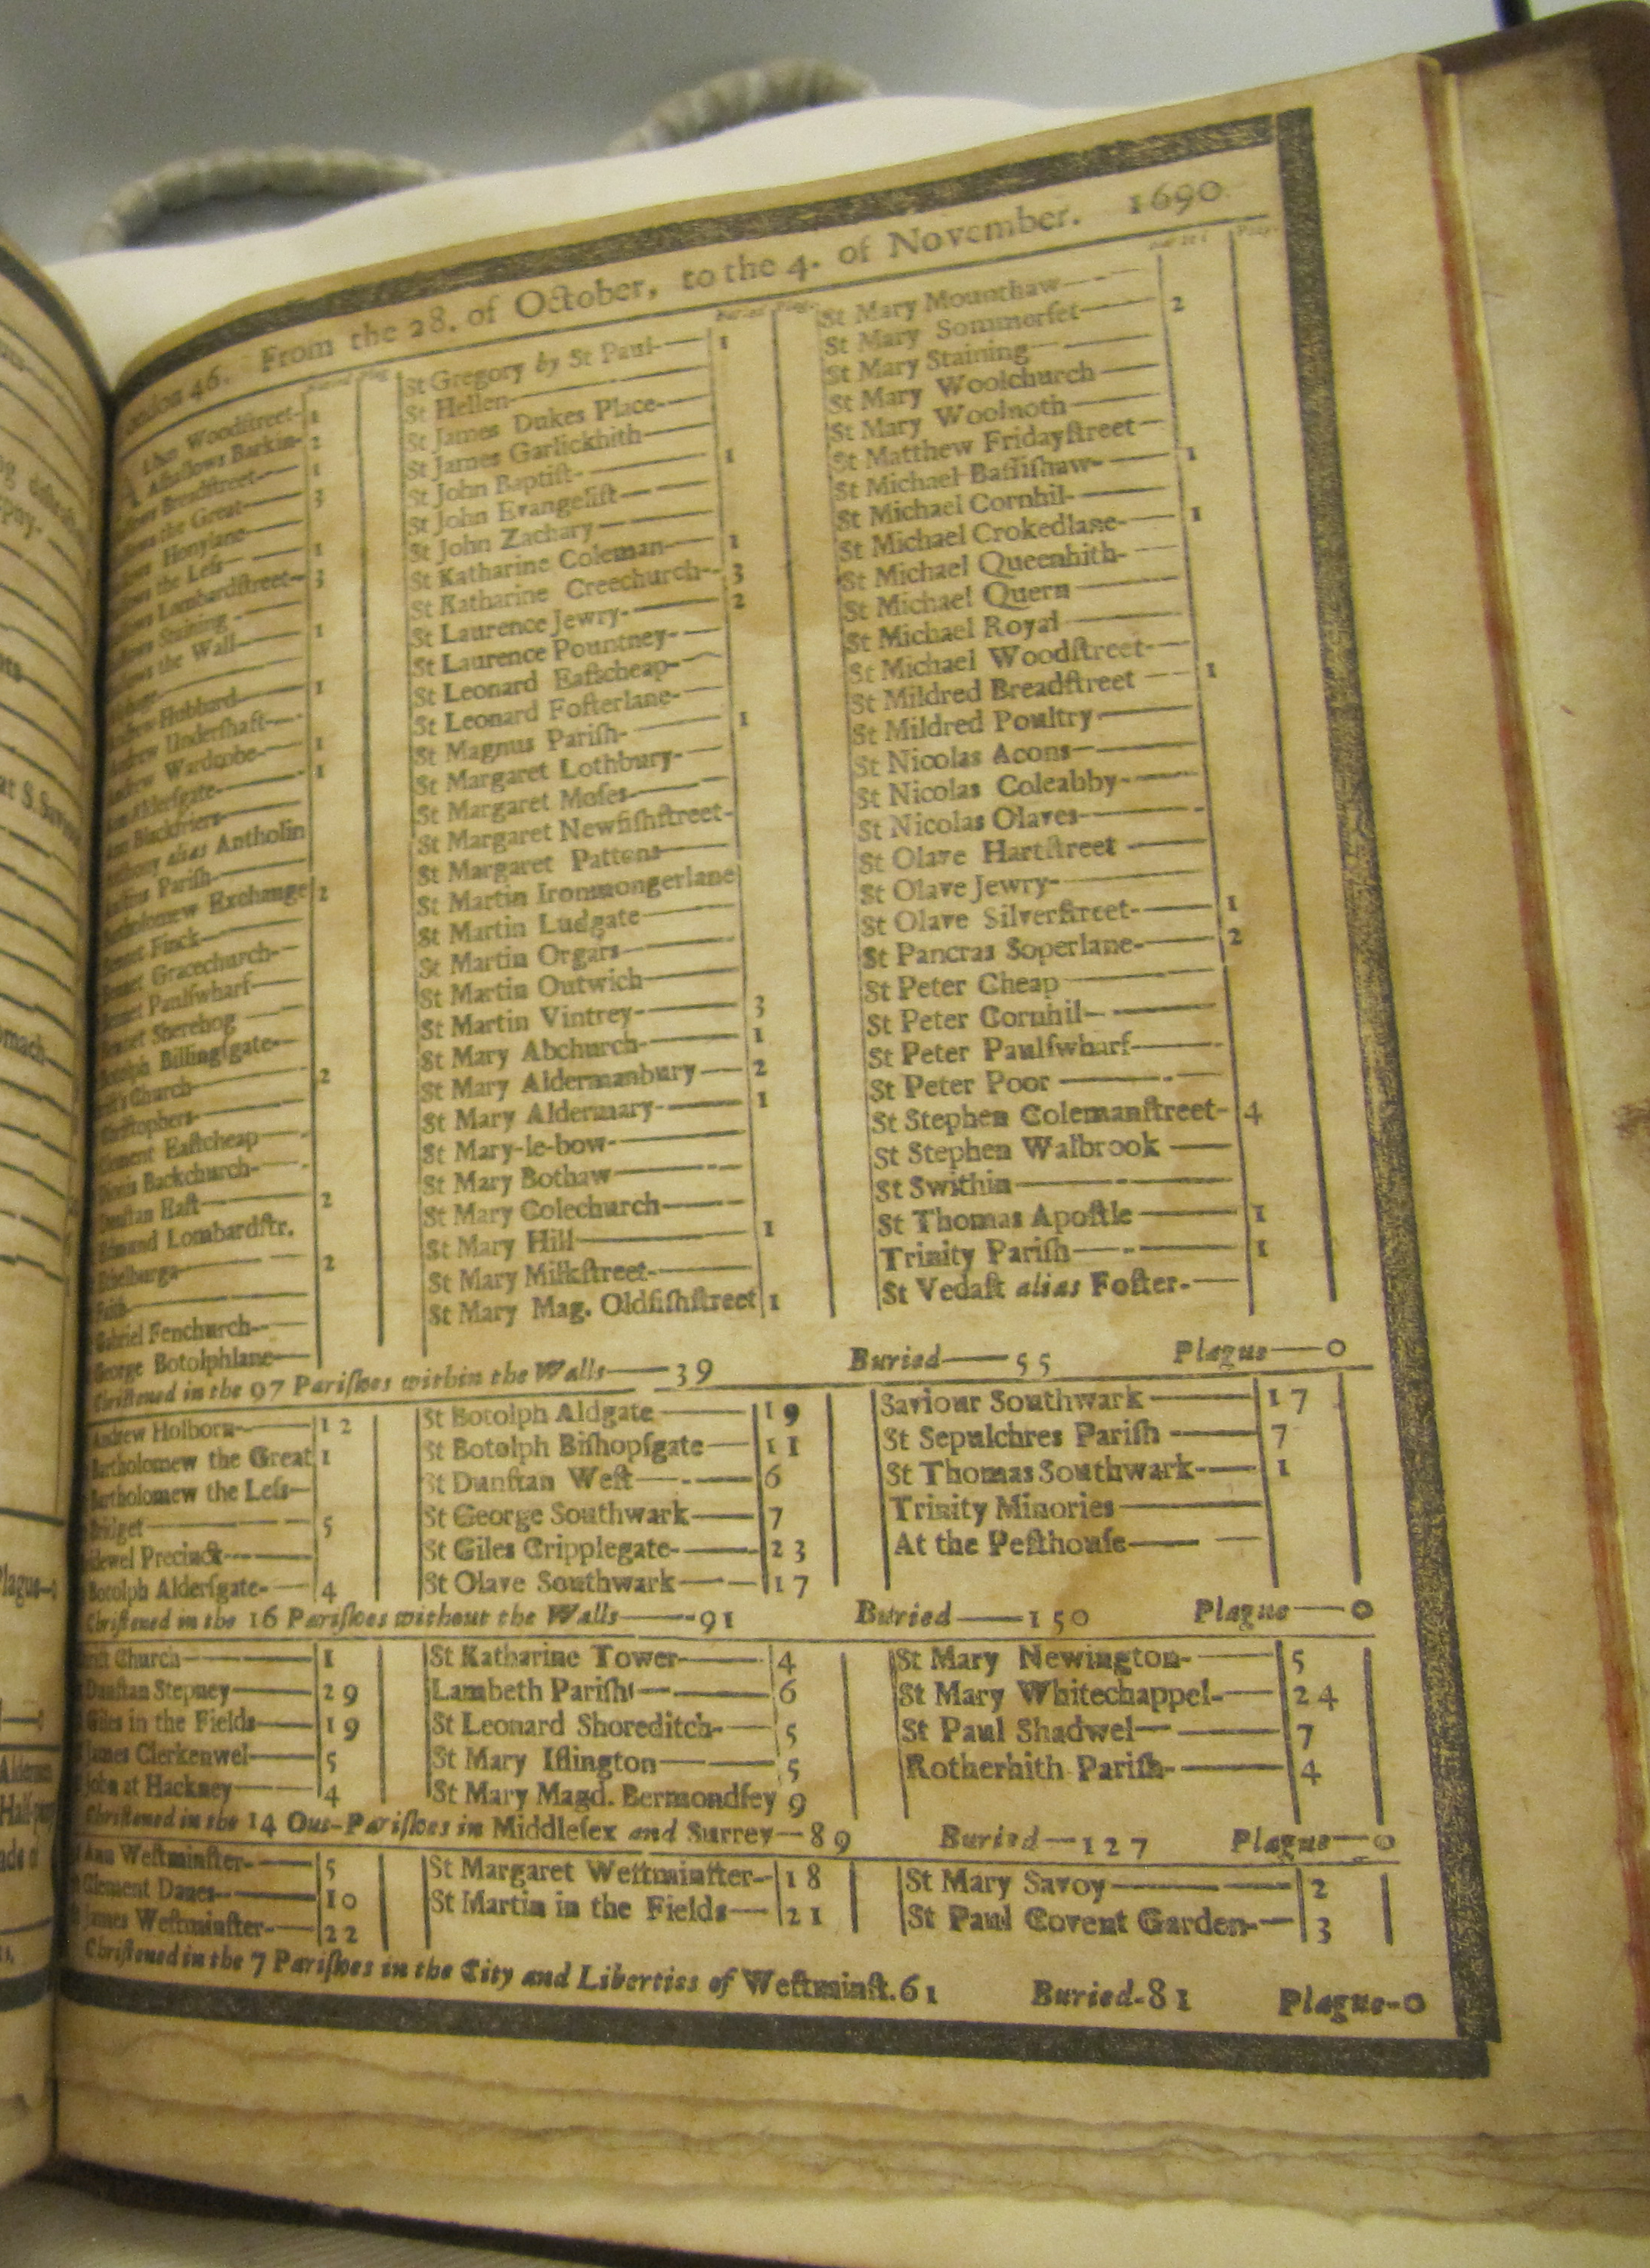 46. From the 28. of October, to the 4. of November. 1690
Buried Plag.
Woodſtreet- 1
Alhallows Barkin- 2
Breadſtreet— 1
the Great— 3
Honylane—
the Leſs— 1
Lombardſtreet— 3
Staining—
the Wall— 1
Hubbard— 1
Underſhaft—
Wardrobe— 1
Alderſgate— 1
Blackfriers—
alias Antholin
Pariſh—
Exchange 2
Finck—
Gracechurch-
Paulſwharf—
Sherehog—
Billingſgate—
Church— 2
Eaſtcheap—
Backchurch-
Eaſt— 2
Lombardſtr.
2
Fenchurch—
George Botolphlane—
Buried Plag.
St Gregory by St Paul— 1
St Hellen—
St James Dukes Place—
St James Garlickhith—
St John Baptiſt— 1
St John Evangeliſt—
St John Zachary—
St Katharine Coleman— 1
St Katharine Creechurch- 3
St Laurence Jewry— 2
St Laurence Pountney-
St Leonard Eaſtcheap-
St Leonard Foſterlane-
St Magnus Pariſh— 1
St Margaret Lothbury-
St Margaret Moſes—
St Margaret Newfiſhſtreet-
St Margaret Pattons—
St Martin Ironmongerlane
St Martin Ludgate—
St Martin Orgars—
St Martin Outwich—
St Martin Vintrey— 3
St Mary Abchurch— 1
St Mary Aldermanbury— 2
St Mary Aldermary— 1
St Mary-le-bow—
St Mary Bothaw—
St Mary Colechurch—
St Mary Hill— 1
St Mary Milkſtreet—
St Mary Mag. Oldfiſhſtreet 1
Buried Plag.
St Mary Mounthaw—
St Mary Sommerſet— 2
St Mary Staining—
St Mary Woolchurch—
St Mary Woolnoth—
St Matthew Fridayſtreet—
St Michael Baſſiſhaw— 1
St Michael Cornhil—
St Michael Crokedlane— 1
St Michael Queenhith-
St Michael Quern—
St Michael Royal—
St Michael Woodſtreet—
St Mildred Breadſtreet— 1
St Mildred Poultry—
St Nicolas Acons—
St Nicolas Coleabby—
St Nicolas Olaves—
St Olave Hartſtreet—
St Olave Jewry—
St Olave Silverſtreet— 1
St Pancras Soperlane— 2
St Peter Cheap—
St Peter Cornhil—
St Peter Paulſwharf—
St Peter Poor—
St Stephen Colemanſtreet- 4
St Stephen Walbrook—
St Swithin—
St Thomas Apoſtle— 1
Trinity Pariſh— 1
St Vedaſt alias Foſter.—
Chriſtened in the 97 Pariſhes within the Walls— 39 Buried— 55 Plague—0
Andrew Holborn— 12
Bartholomew the Great 1
Bartholomew the Leſs—
Bridget— 5
Precinct—
Botolph Alderſgate- 4
St Botolph Aldgate— 19
St Botolph Biſhopſgate— 11
St Dunſtan Weſt— 6
St George Southwark— 7
St Giles Cripplegate— 23
St Olave Southwark— 17
Saviour Southwark— 17
St Sepulchres Pariſh— 7
St Thomas Southwark— 1
Trinity Minories—
At the Peſthouſe—
Chriſtened in the 16 Pariſhes without the Walls— 91 Buried— 150 Plague—0
Church— 1
Dunſtan Stepney— 29
Giles in the Fields— 19
James Clerkenwel— 5
John at Hackney— 4
St Katharine Tower— 4
Lambeth Pariſh— 6
St Leonard Shoreditch— 5
St Mary Iſlington— 5
St Mary Magd. Bermondſey 9
St Mary Newington- 5
St Mary Whitechappel- 24
St Paul Shadwel— 7
Rotherhith Pariſh— 4
Chriſtened in the 14 Out-Pariſhes in Middleſex and Surrey—89 Buried—127 Plague—0
Ann Weſtminſter— 5
Clement Danes— 10
James Weſtminſter— 22
St Margaret Weſtminſter- 18
St Martin in the Fields— 21
St Mary Savoy— 2
St Paul Covent Garden— 3
Chriſtened in the 7 Pariſhes in the City and Liberties of Weſtminſt. 61 Buried-81 Plague-0